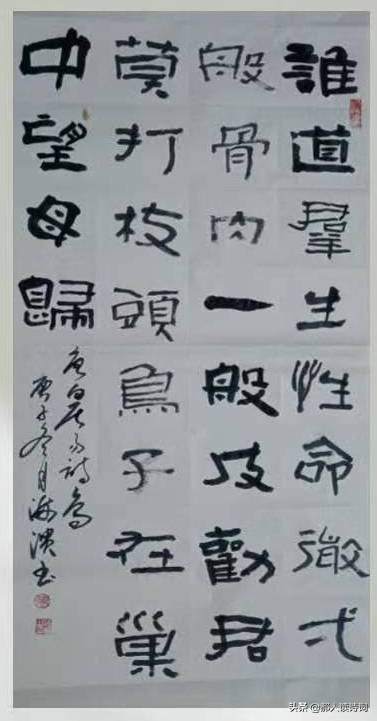 誰道羣生性命微弌
般骨肉一般皮勸君
莫打枝頭鳥子在巢
中望母歸
唐白居易詩鳥
庚子冬月海濱书
头条